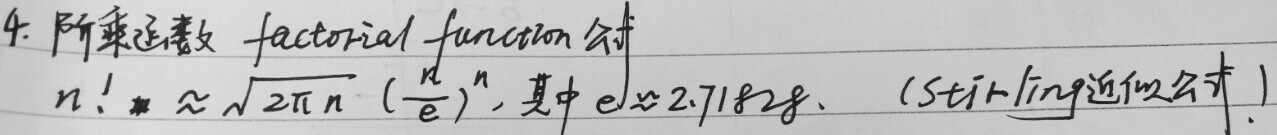 4. 阶乘函数 factorial function 公式
n! ≈ √(2πn) (n/e)^n, 其中 e ≈ 2.71828. (Stirling近似公式!)